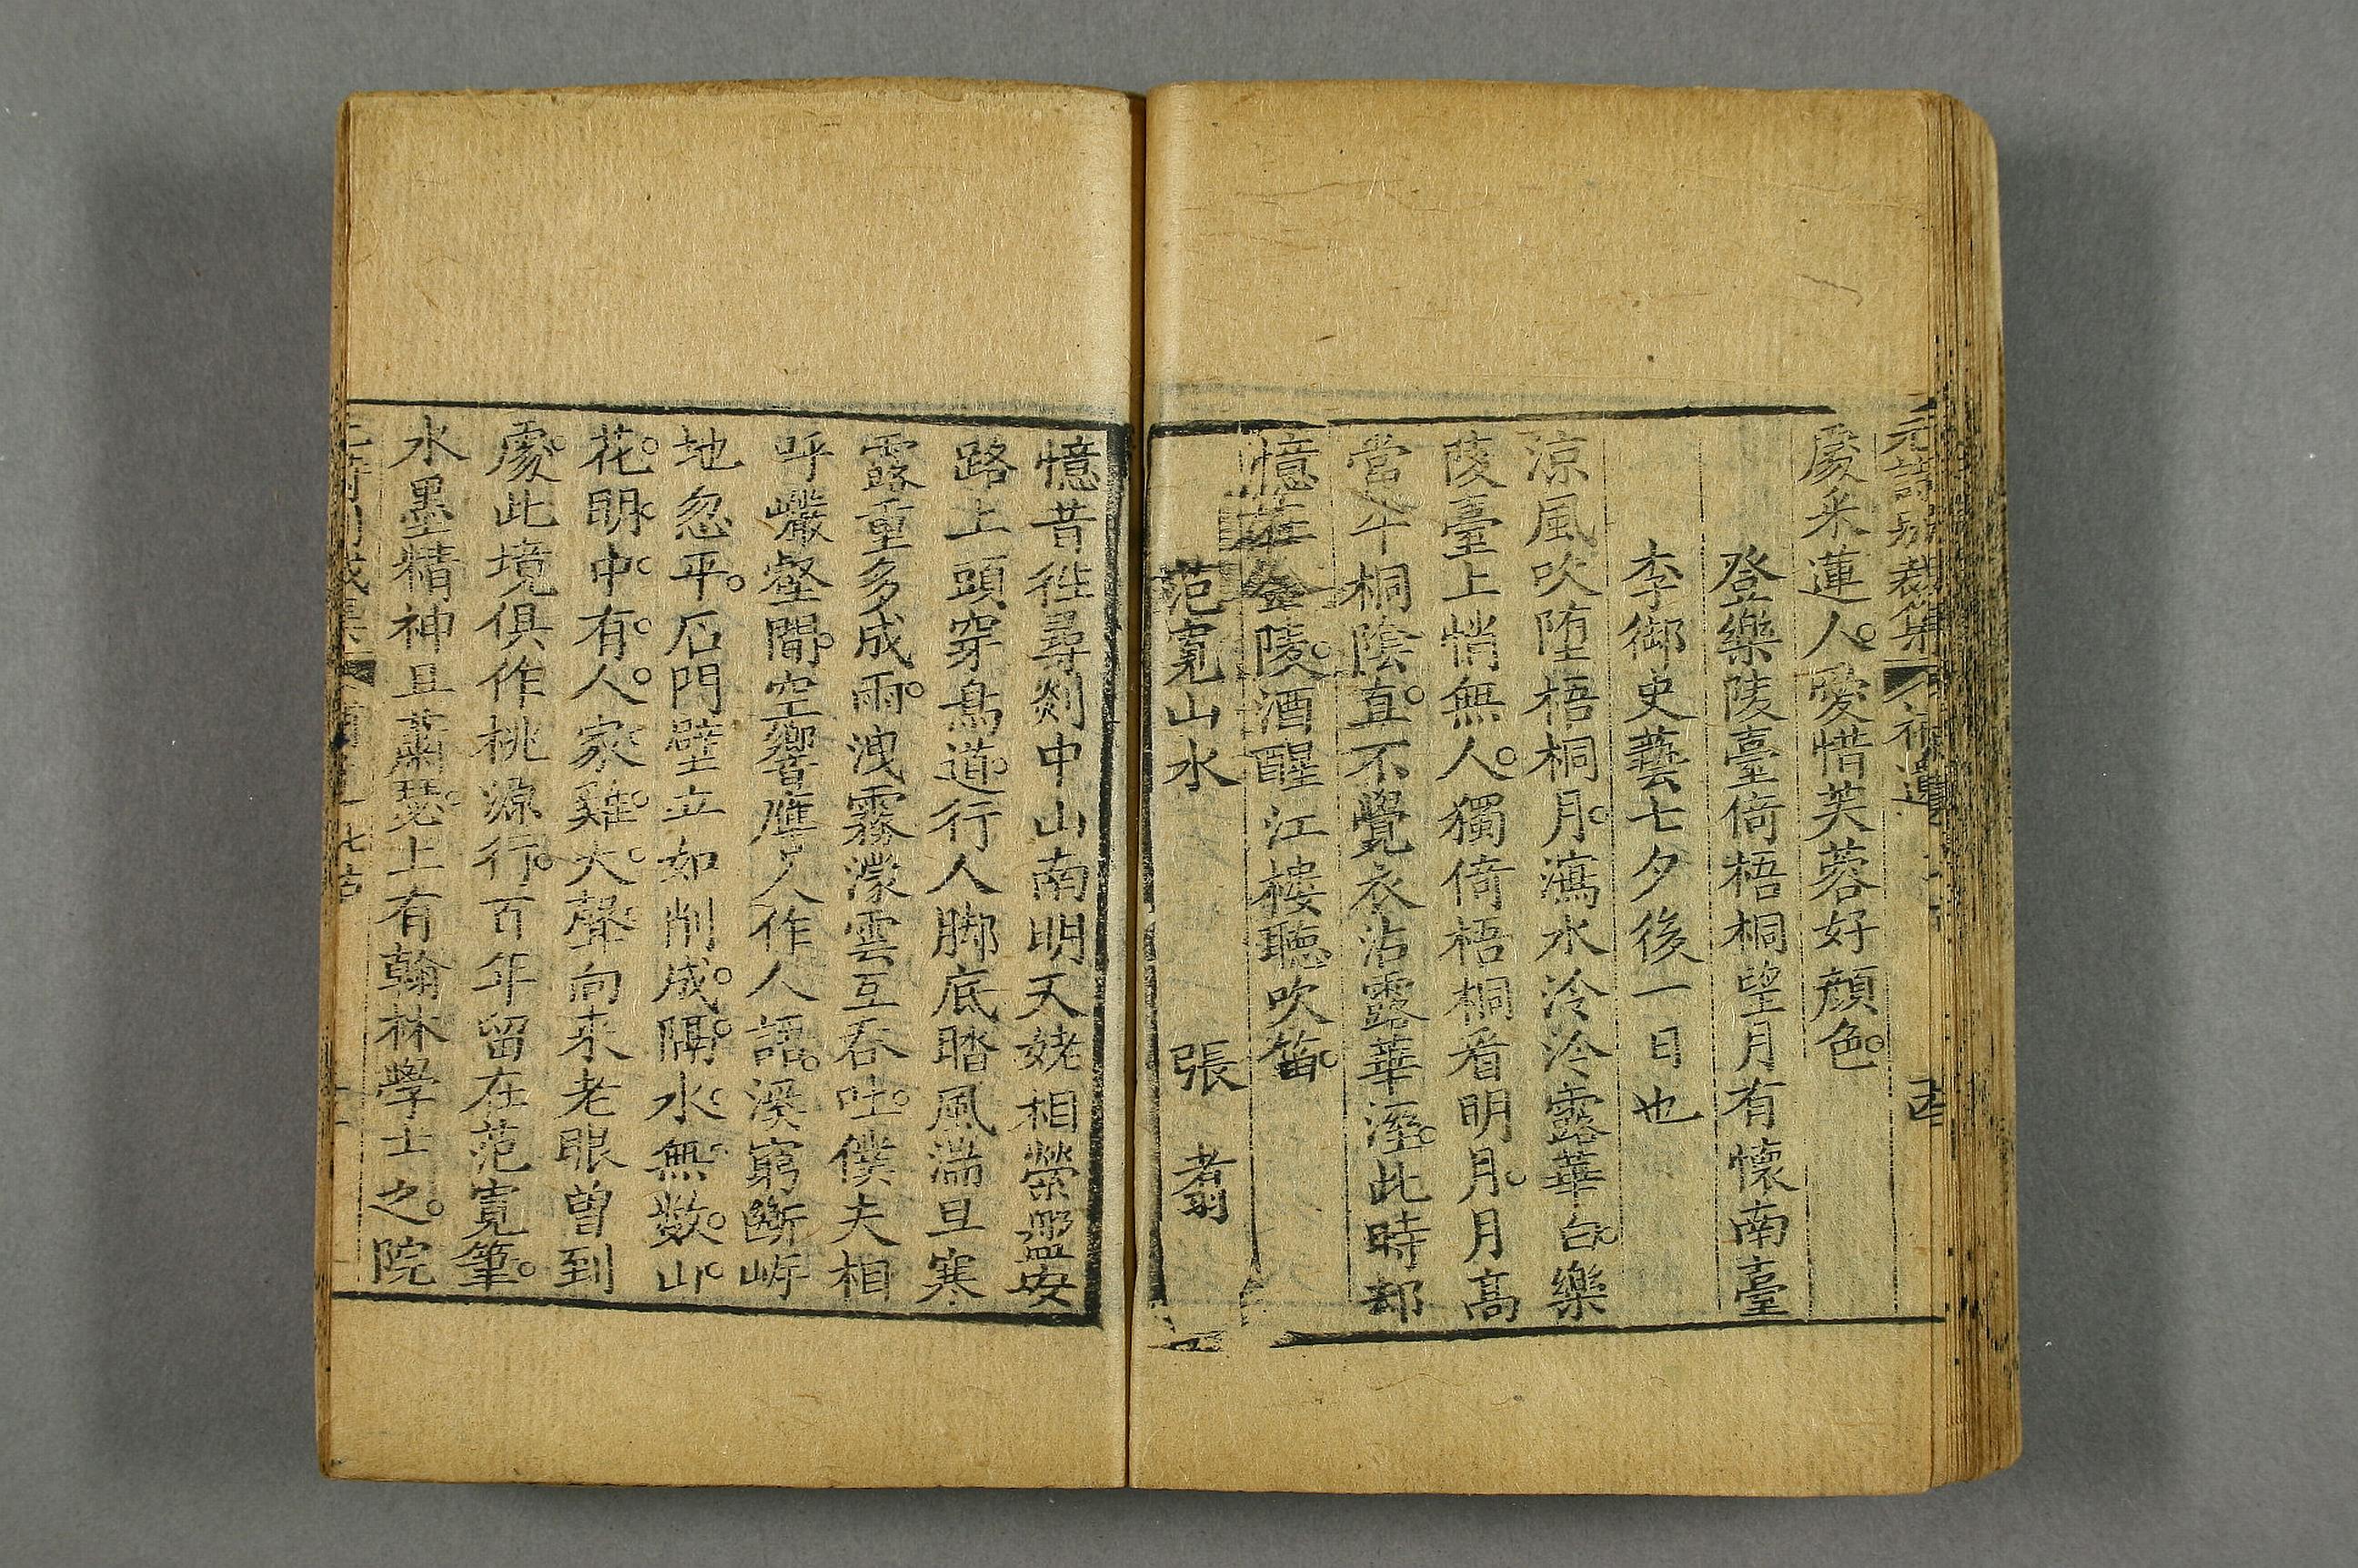 元詩
補遺
處采蓮人愛惜芙蓉好顏色
登樂陵臺倚梧桐望月有懷南臺
李御史藝七夕後一日也
涼風吹堕梧桐月瀉水泠泠露華白樂
陵臺上悄無人獨倚梧桐看明月月高
當午桐陰直不覺衣沾露華溼此時却
憶在金陵酒醒江樓聽吹笛
范寬山水 張翥
憶昔徃尋剡中山南明天姥相縈盤安
路上頭穿鳥道行人脚底踏風湍旦寒
露重多成雨洩霧濛雲互吞吐僕夫相
呼巖壑間空響應人作人語溪窮斷岸
地忽平石門壁立如削成隔水無数山
花明中有人家雞犬聲向來老眼曽到
處此境俱作桃源行百年留在范寬筆
水墨精神且蕭瑟上有翰林學士之院